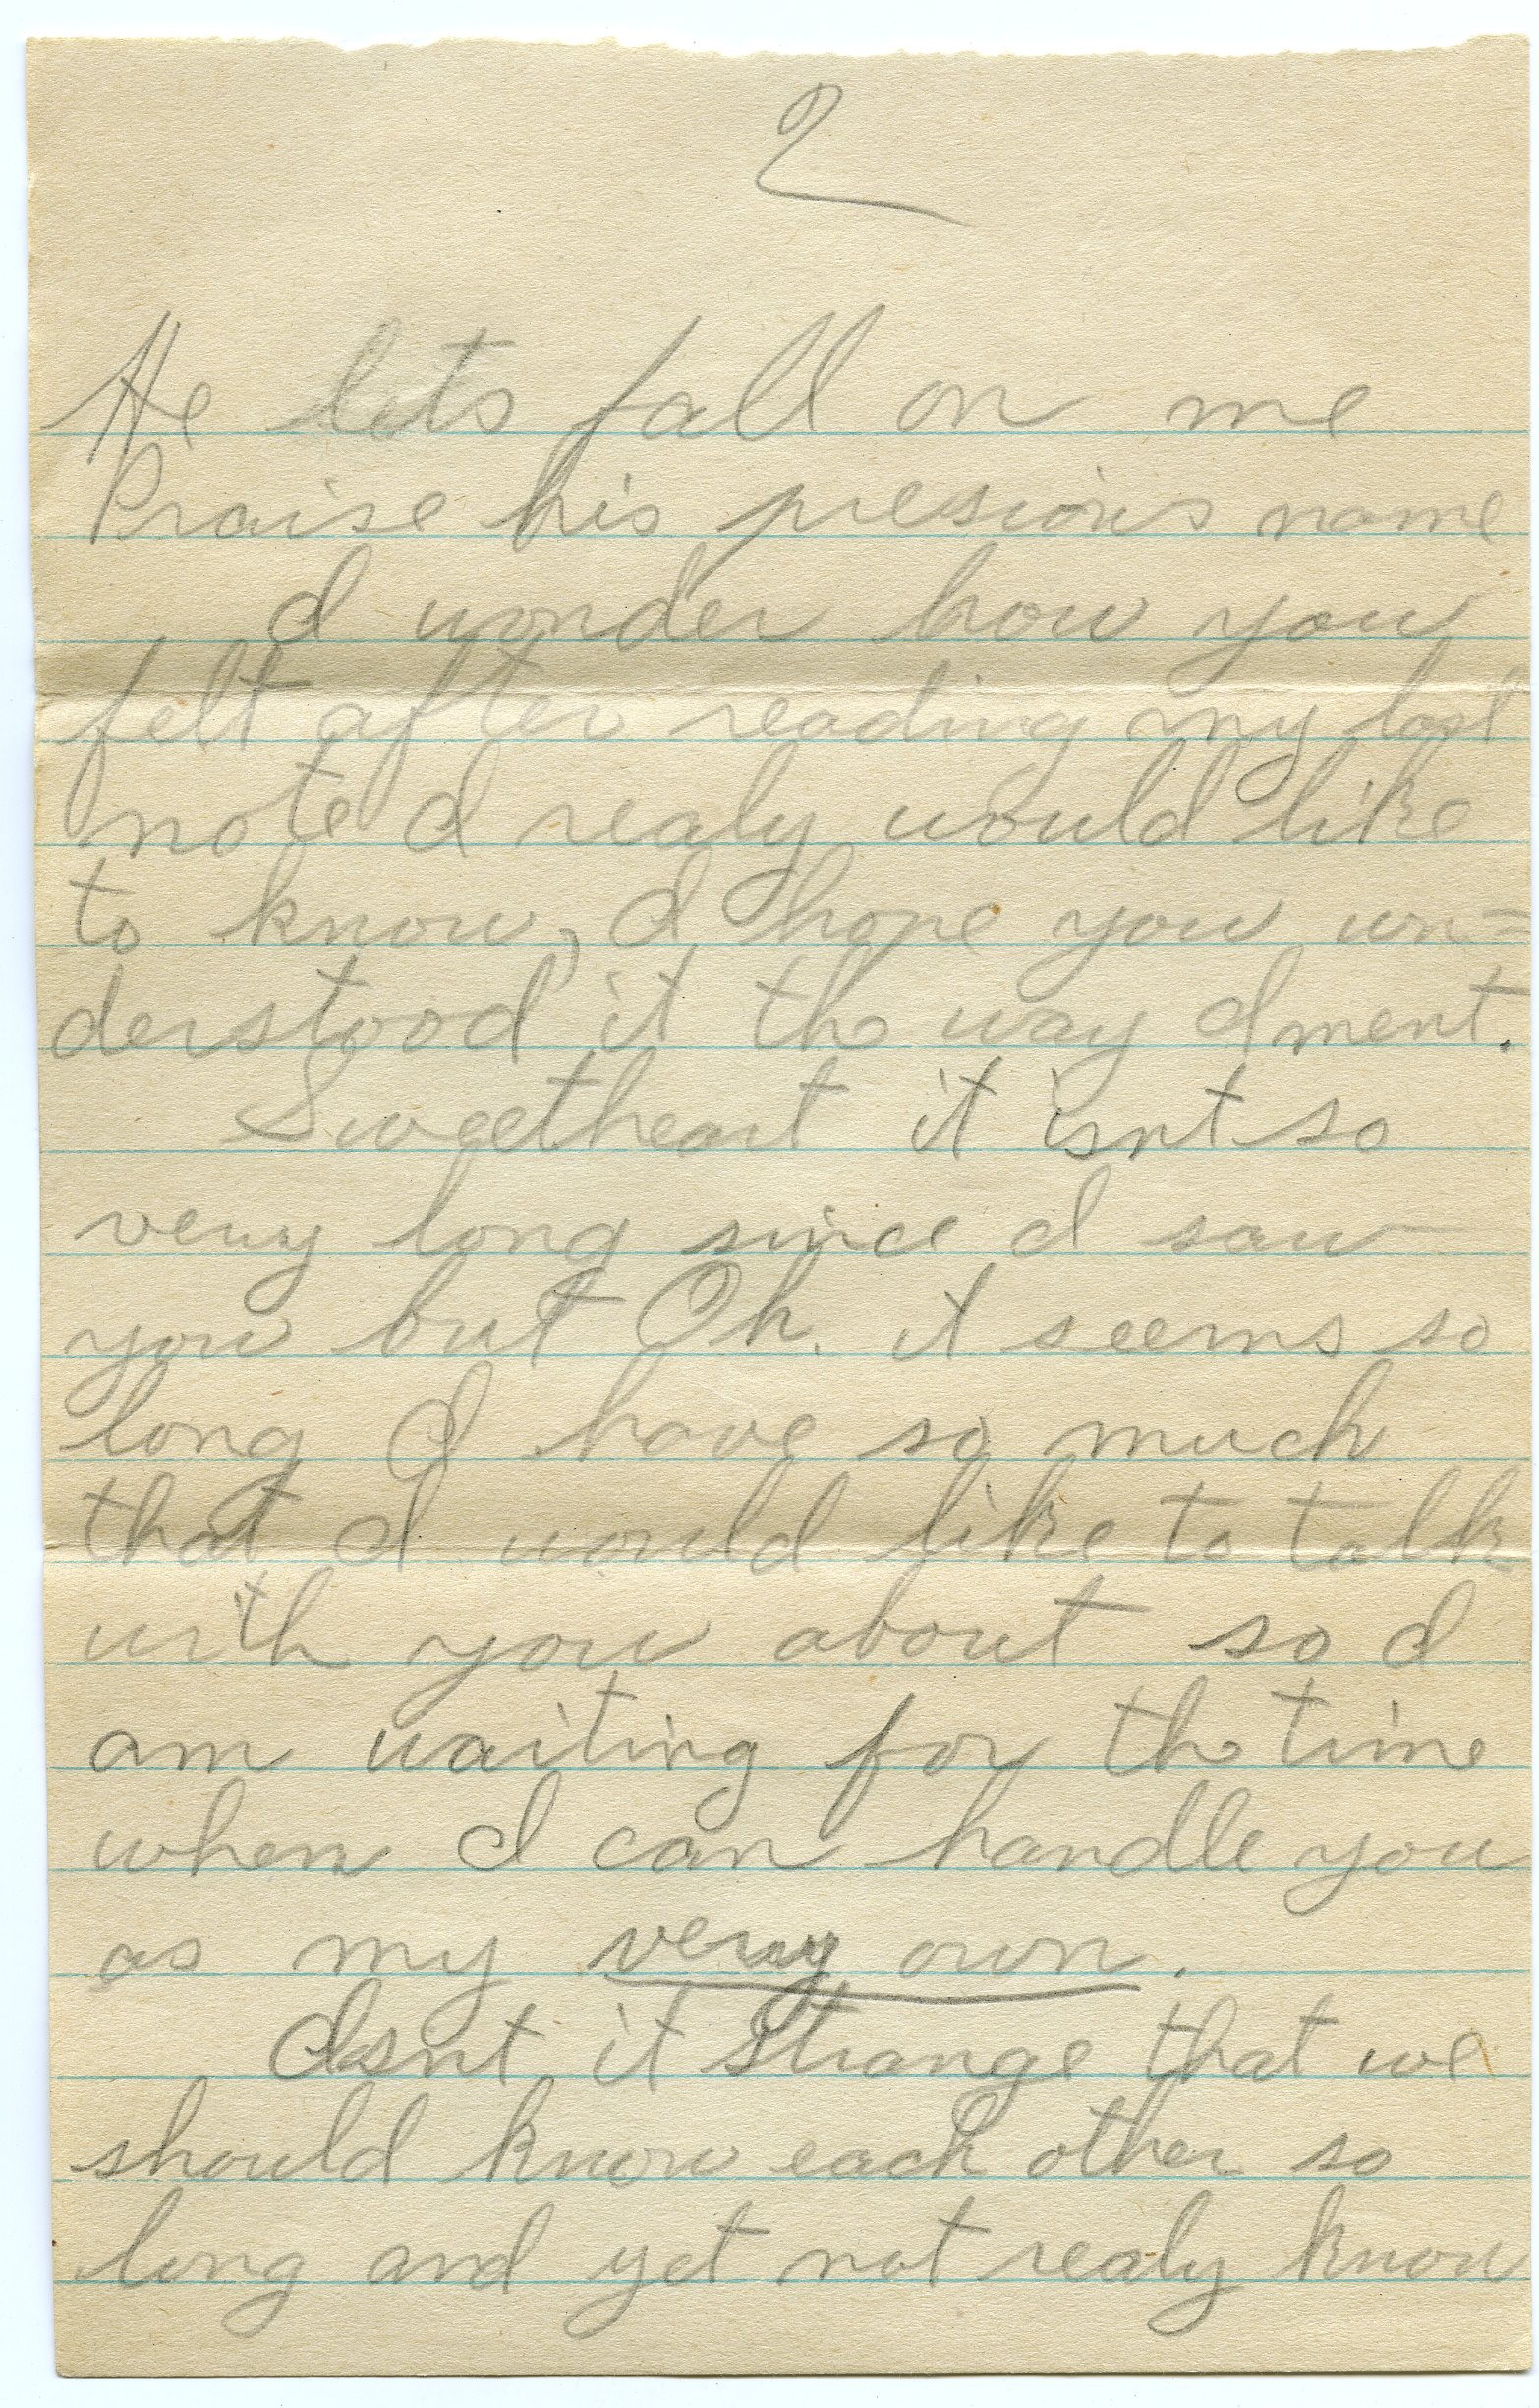 2
He lets fall on me
Praise his presious name
I wonder how you
felt after reading my last
note I realy would like
to know, I hope you un=
derstood it the way I ment.
Sweetheart it isnt so
very long since I saw
you but Oh. it seems so
long I have so much
that I would like to talk
with you about so I
am waiting for the time
when I can handle you
as my very own.
Isnt it strange that we
should know each other so
long and yet not realy know